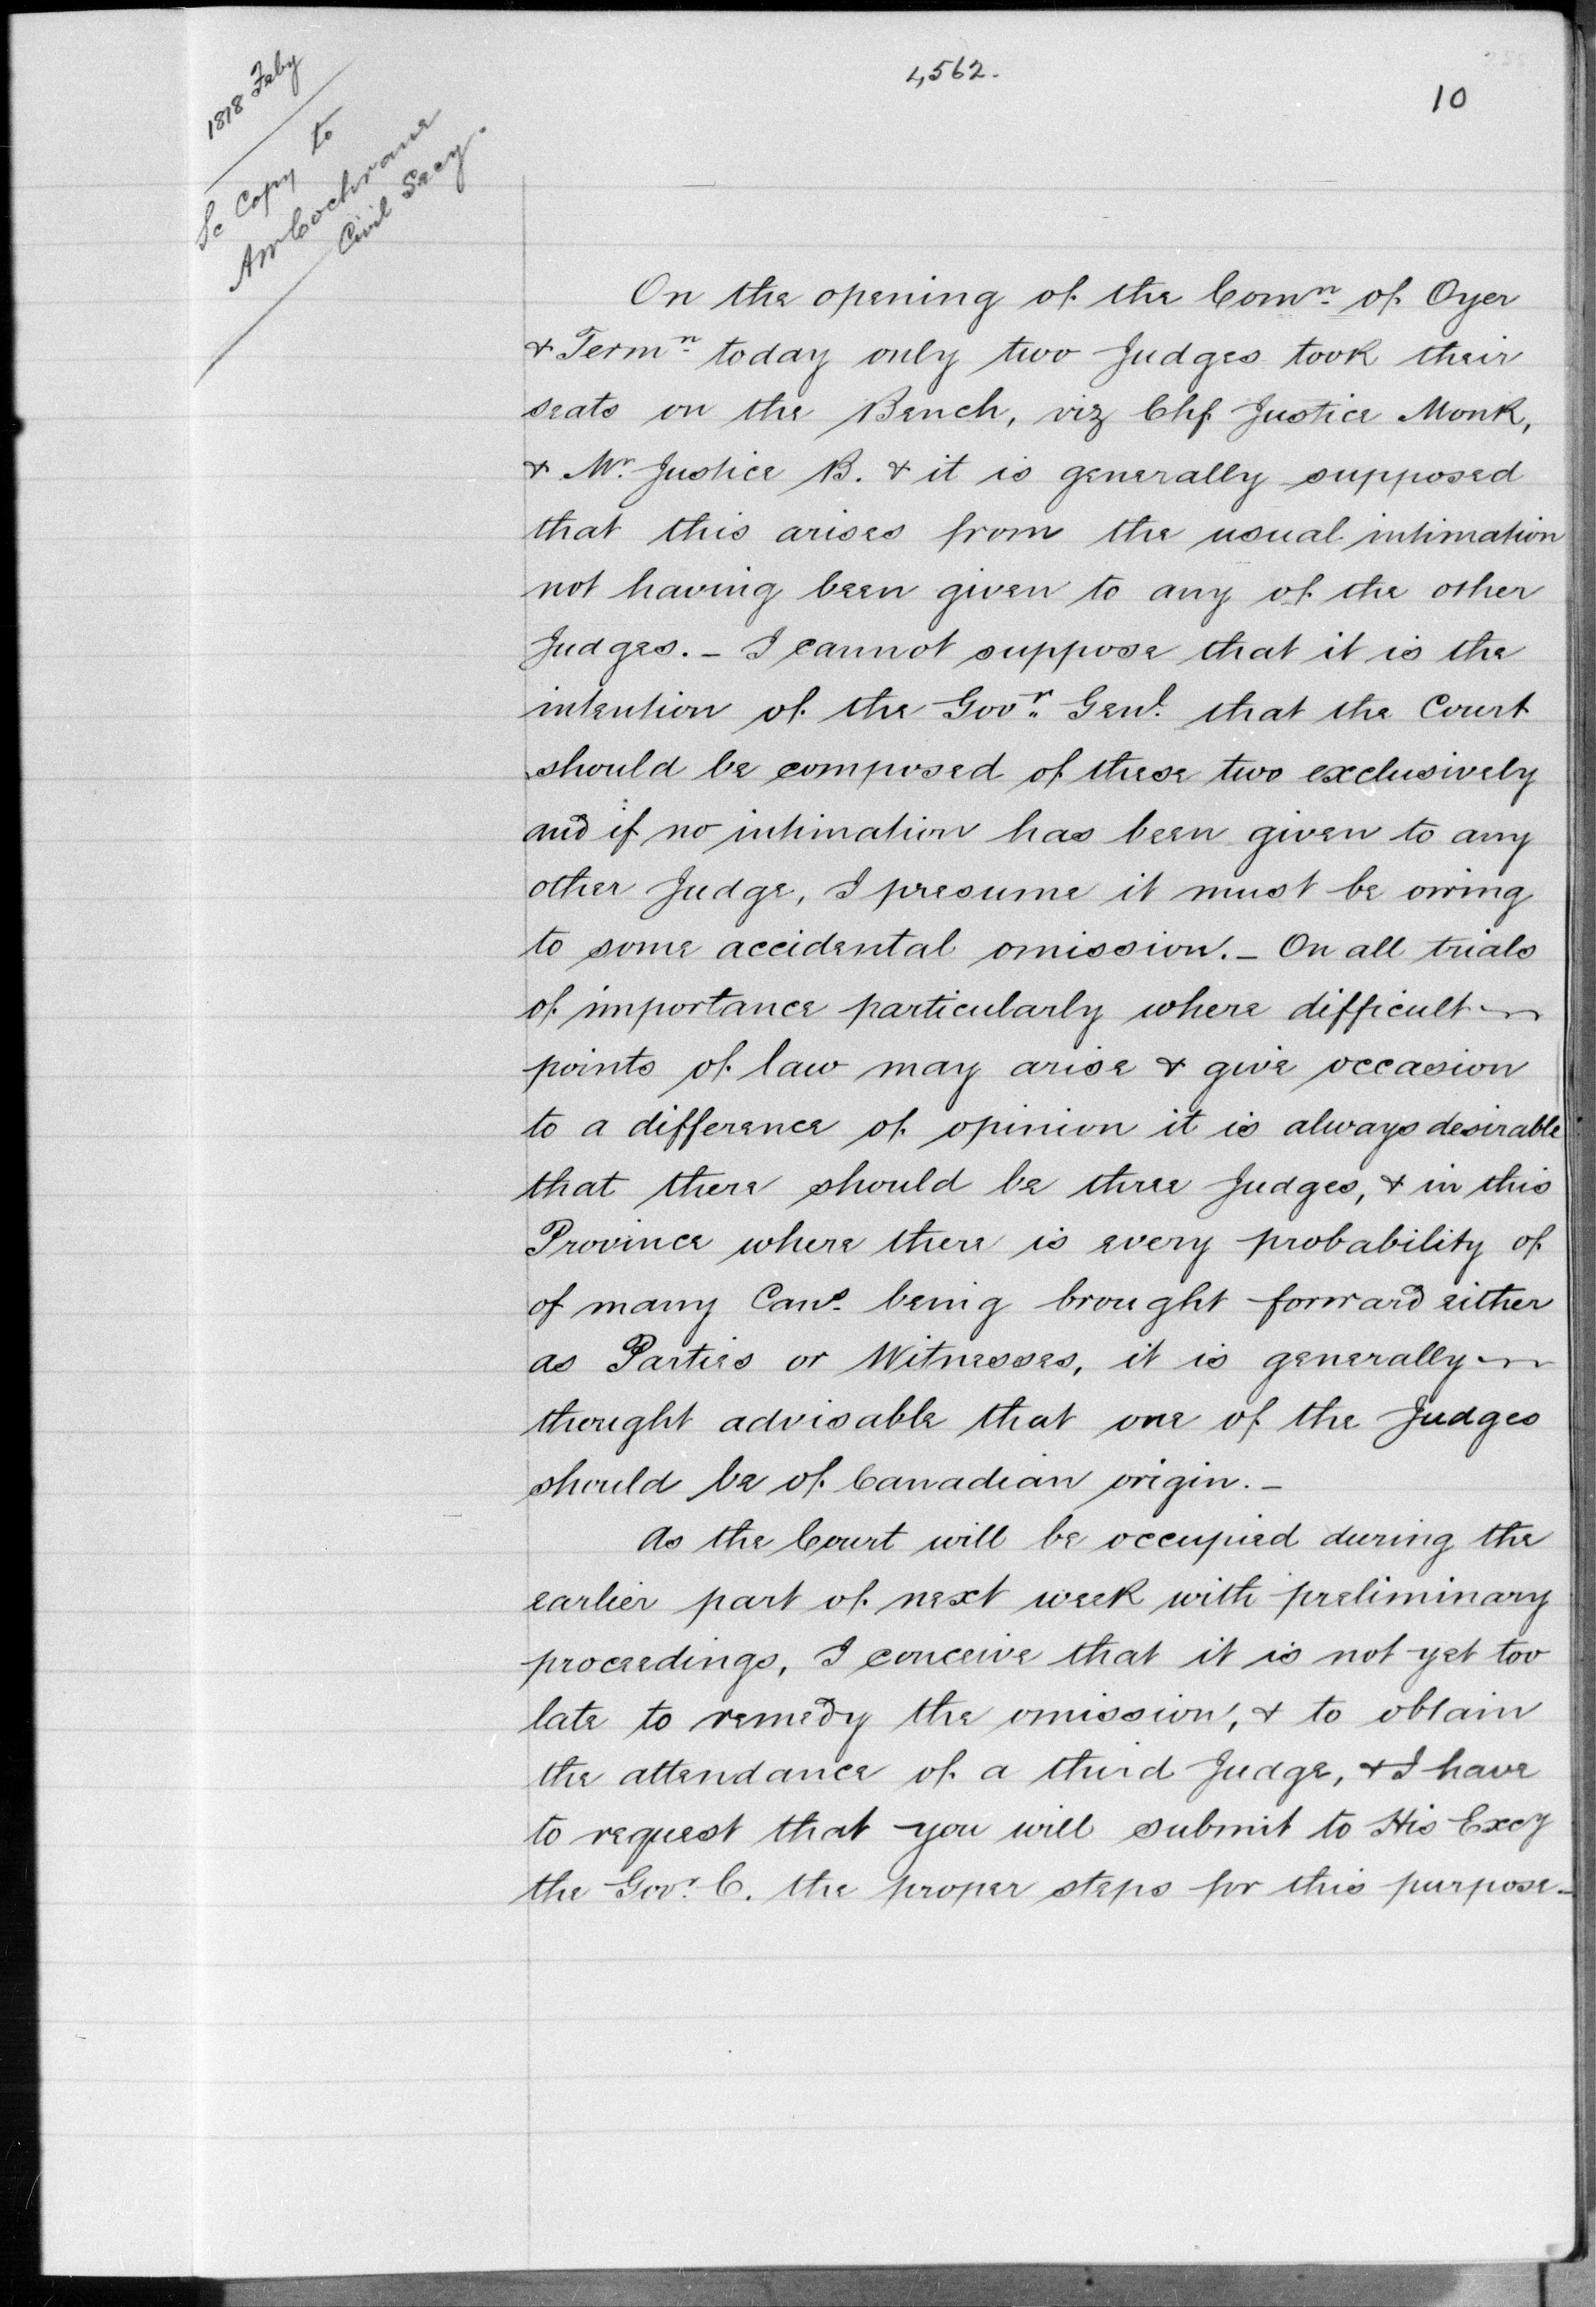 4,562.
10
1818 Feby
Sc Copy to
AmCochrane
Civil Secy.
On the opening of the Comn. of Oyer
& Termn. today only two Judges took their
seats on the Bench, viz Chf Justice Monk,
& Mr. Justice B. & it is generally supposed
that this arises from the usual intimation
not having been given to any of the other
Judges. - I cannot suppose that it is the
intention of the Govr. Genl. that the Court
should be composed of these two exclusively
and if no intimation has been given to any
other Judge, I presume it must be owing
to some accidental omission. - On all trials
of importance particularly where difficult
points of law may arise & give occasion
to a difference of opinion it is always desirable
that there should be three Judges, & in this
Province where there is every probability of
of many Cans. being brought forward either
as Parties or Witnesses, it is generally
thought advisable that one of the Judges
should be of Canadian origin. -
As the Court will be occupied during the
earlier part of next week with preliminary
proceedings, I conceive that it is not yet too
late to remedy the omission, & to obtain
the attendance of a third Judge, & I have
to request that you will submit to His Excy
the Govr. C. the proper steps for this purpose -